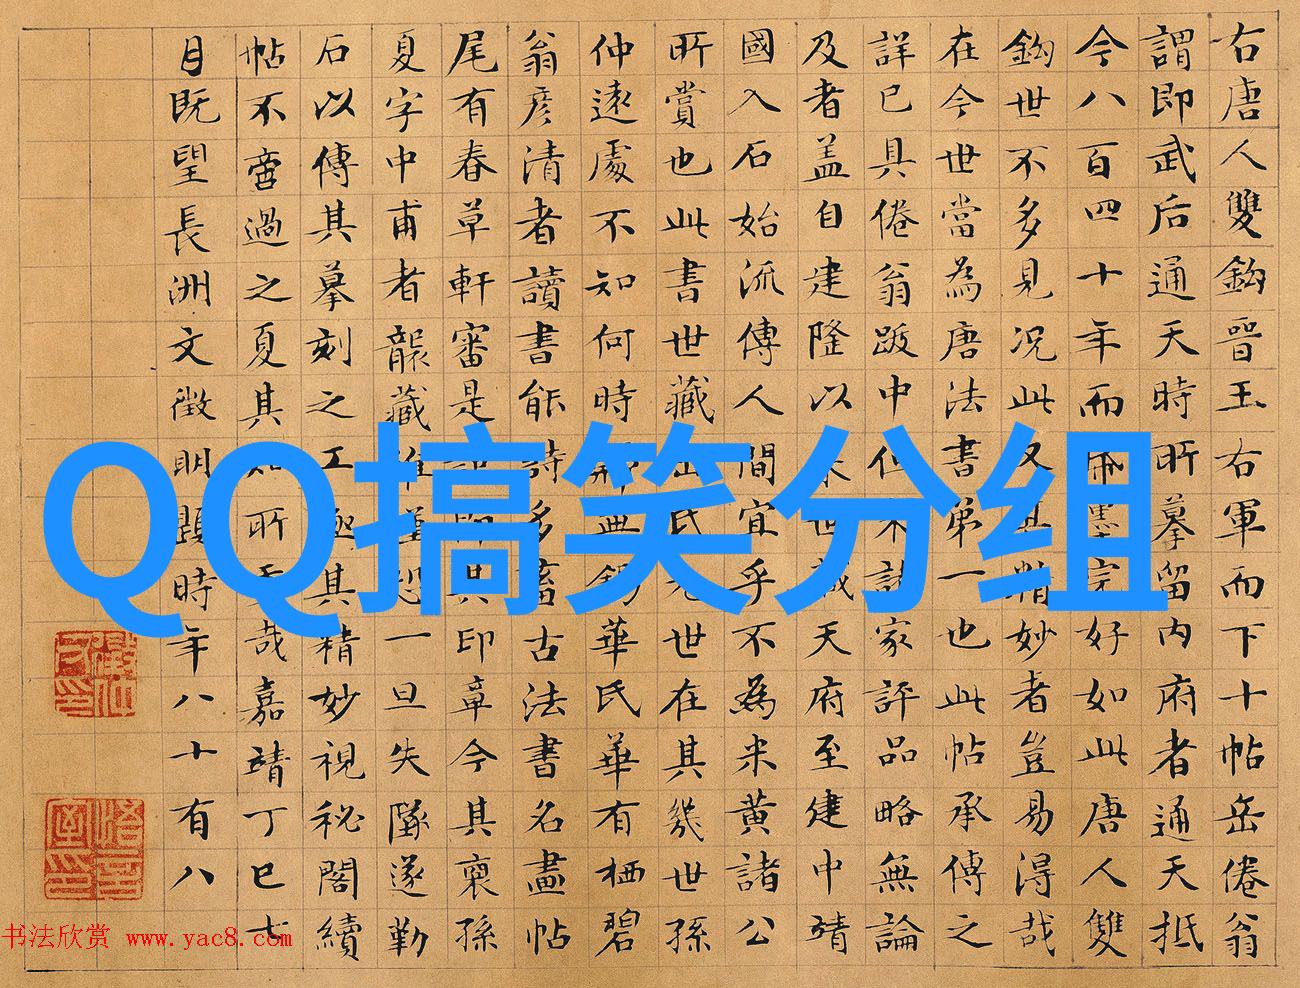 右唐人雙鈎晉王右軍而下十帖岳倦翁
謂即武后通天時所摹留内府者通天抵
今八百四十年而紙墨完好如此唐人雙
鈎世不多見況此又其精妙者豈易得哉
在今世當為唐法書第一也此帖承傳之
詳已具倦翁跋中但諸家評品略無論
及者盖自建隆以來世藏天府至建中靖
國入石始流傳人間宜乎不為米黄諸公
所賞也此書世藏岳氏元世在其幾世孫
仲遠處不知何時歸無錫華氏華有栖碧
翁彦清者讀書能詩多畜古法書名畫帖
尾有春草軒審是即其印章今其裔孫
夏字中甫者襲藏惟謹恐一旦失墜遂勒
石以傳其摹刻之工極其精妙視秘閣續
帖不啻過之夏其知所重哉嘉靖丁巳七
月既望長洲文徵明題時年八十有八
QQ搞笑分组
书法欣赏 www.yac8.com